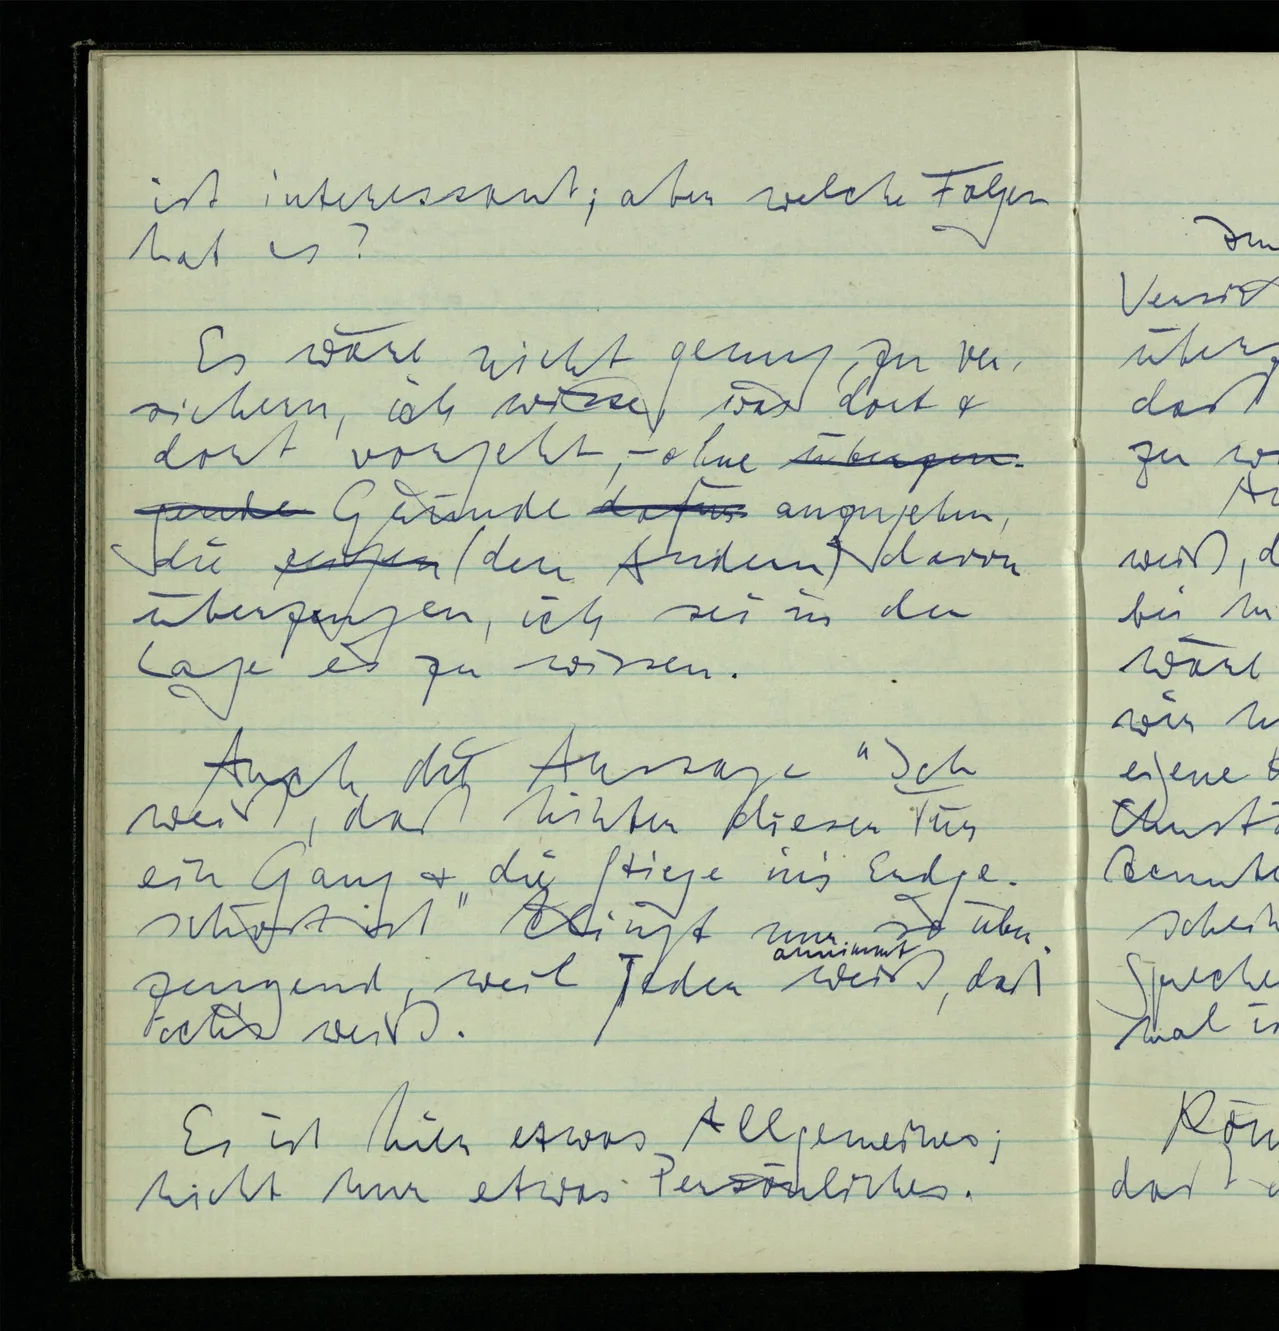 ist interessant; aber welche Folgen
hat es?
Es wäre nicht genug, zu ver-
sichern, ich wisse, was dort &
dort vorgeht, – ohne überzeu-
gende Gründe dafür anzugeben,
die (den Andern) davon
überzeugen, ich sei in der
Lage es zu wissen.
Auch die Aussage "Ich
weiß, daß hinter dieser Tür
ein Gang & die Stiege ins Erdge-
schoß ist" klingt nur so über-
zeugend, weil Jeder weiß, daß
annimmt
ich's weiß.
Es ist hier etwas Allgemeines;
nicht nur etwas Persönliches.
Versich
überz
daß
zu
weiß, d
bis
wäre
wir
eigene
Umstä
kennte
schein
Spreche
mal is
Kön
daß